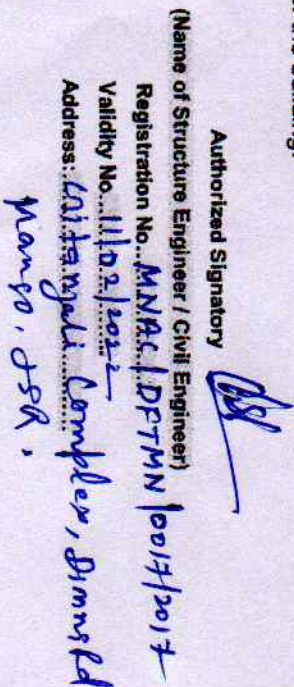 Authorized Signatory
(Name of Structure Engineer / Civil Engineer)
Registration No...MNAC/DFTMN/0017/2017
Validity No...11/02/2022
Address: Gitanjali Complex, Dimna Rd
Mango, JSR.